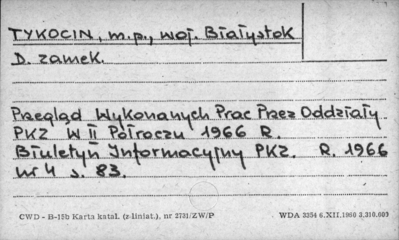 TYKOCIN, m.p., woj. Białystok
D. zamek.
Przegląd Wykonanych Prac Przez Oddziały
PKZ W II Półroczu 1966 R.
Biuletyn Informacyjny PKZ. R. 1966
nr 4 s. 83.
CWD - B-15b Karta katal. (z liniat.), nr 2731/ZW/P WDA 3354 6.XII.1960 3.310.000